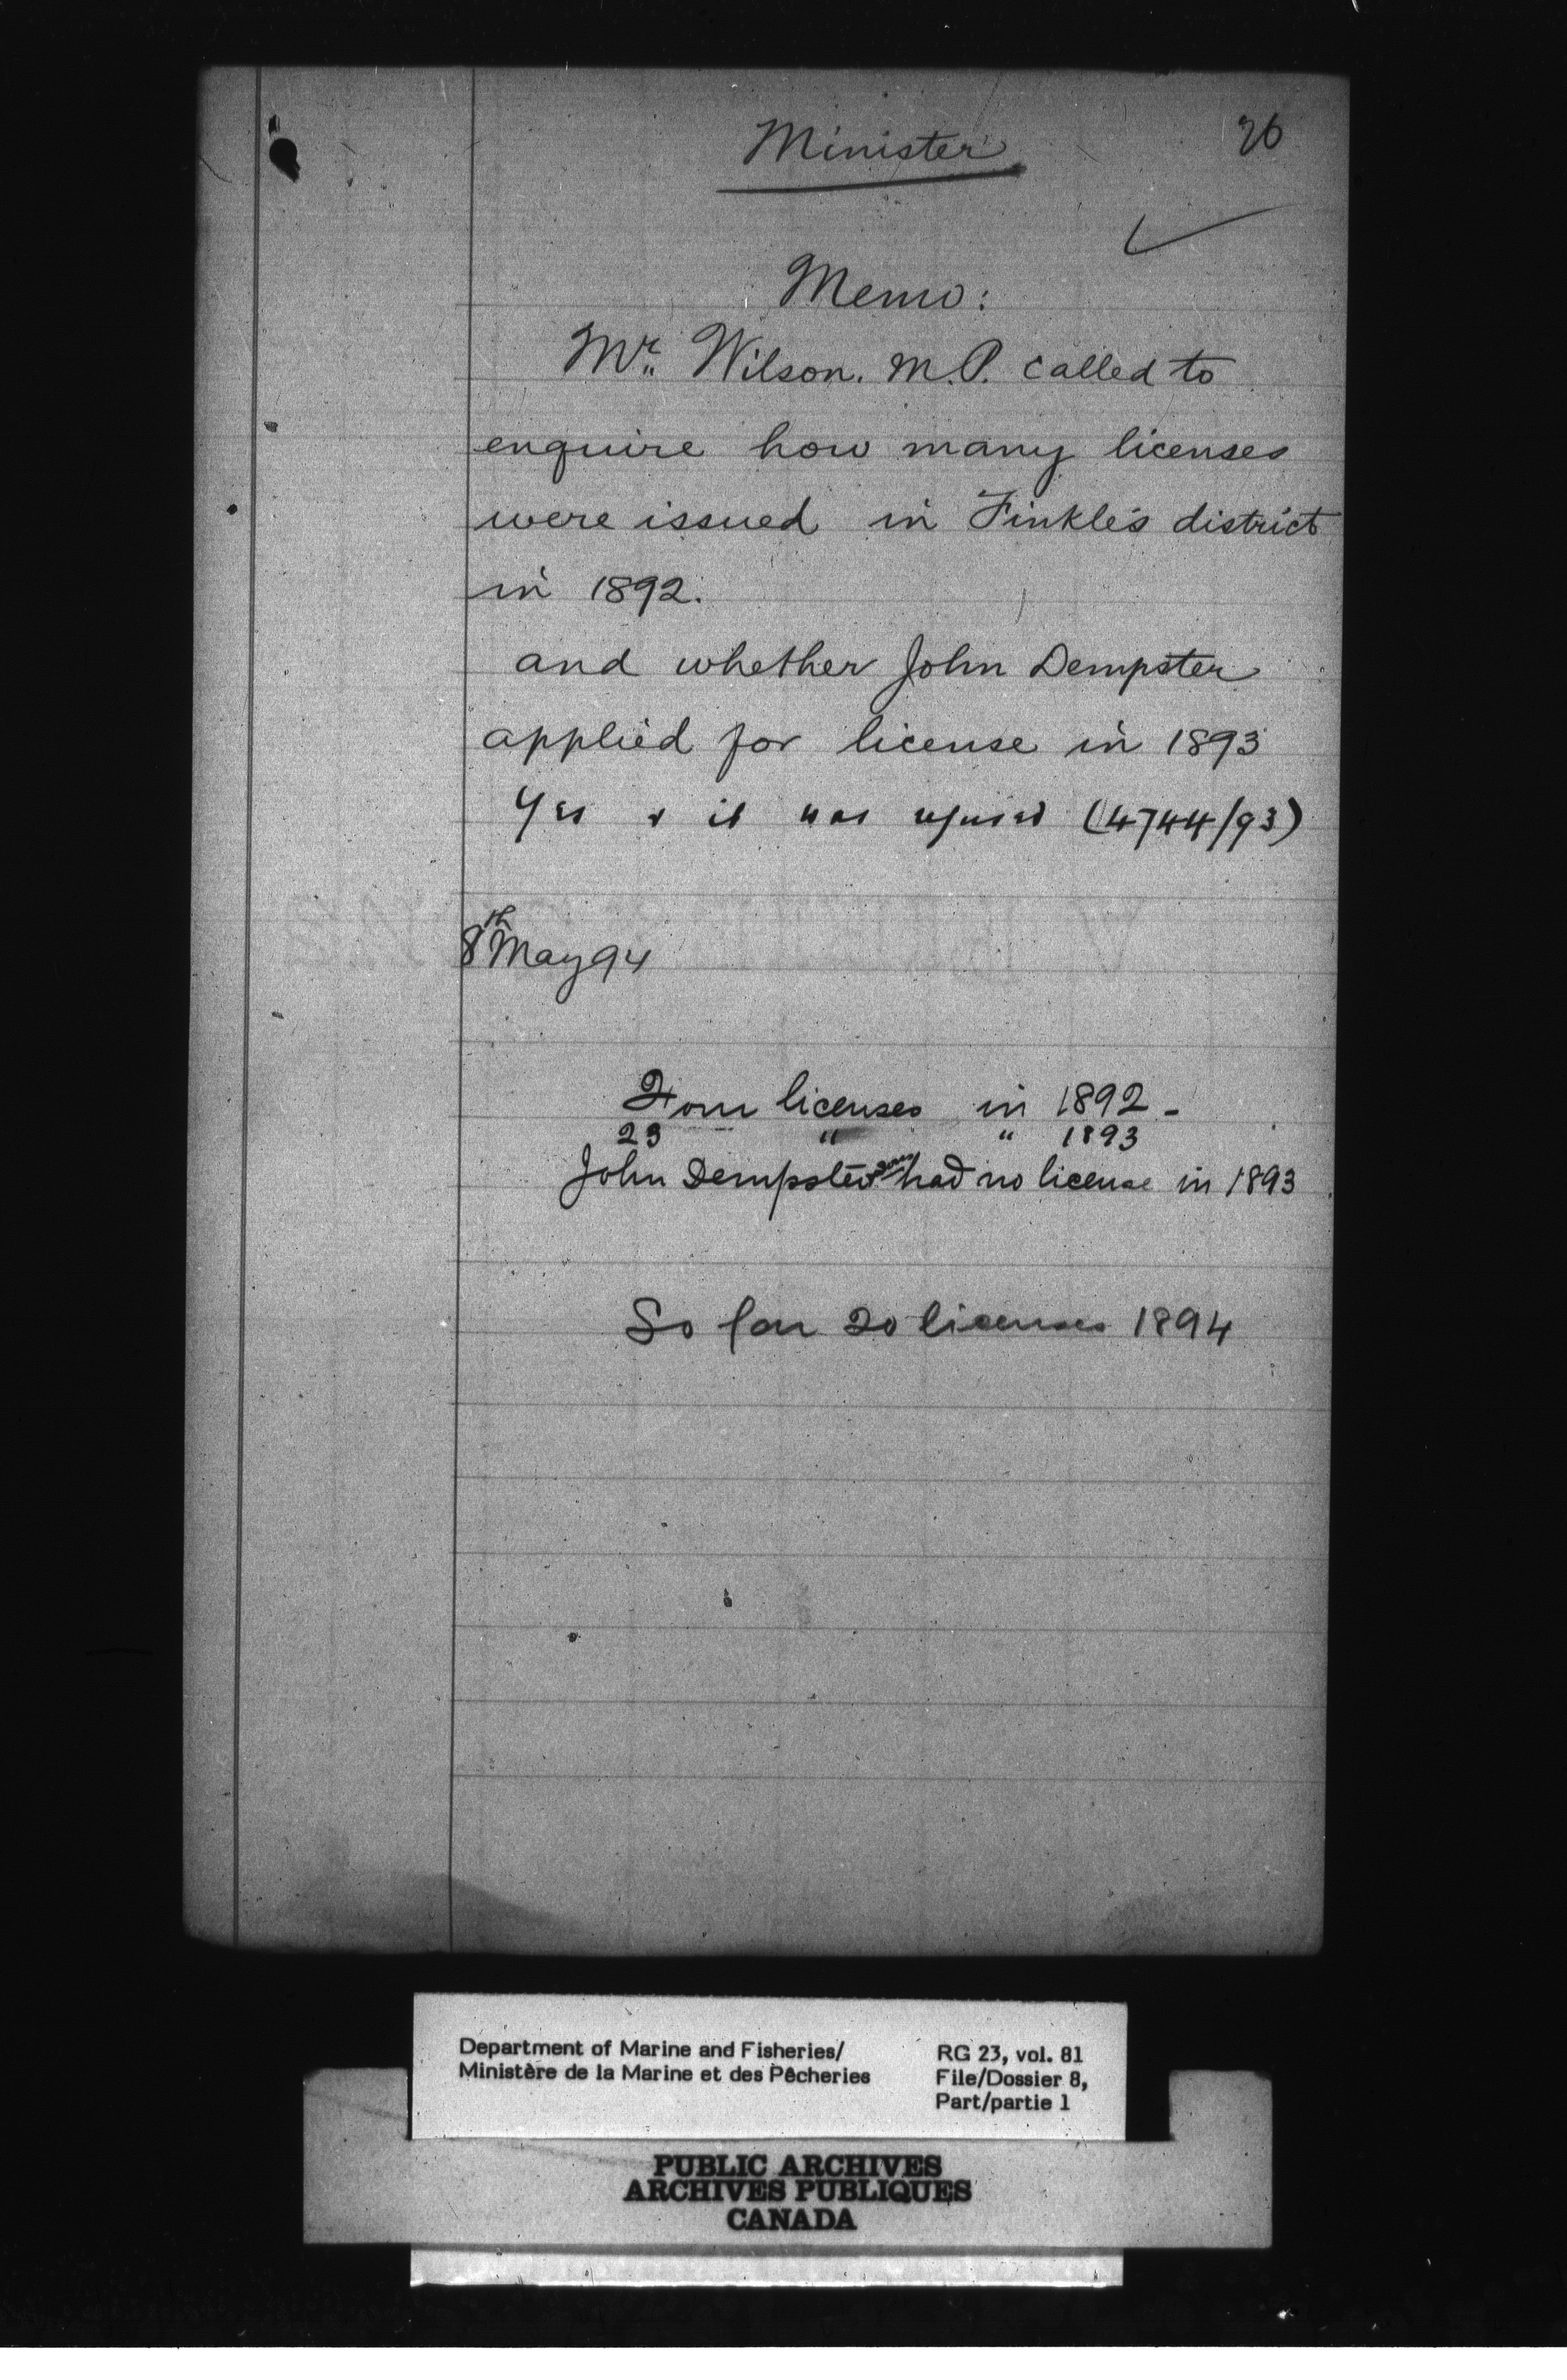 26
Minister
Memo:
Mr. Wilson. M.P. called to
enquire how many licenses
were issued in Finkle's district
in 1892.
and whether John Dempster
applied for license in 1893
Yes & it was refused (4744/93)
8th May 94
Four licenses in 1892 -
23 " " 1893
John Dempster had no license in 1893
So far 20 licenses 1894
Department of Marine and Fisheries/
Ministère de la Marine et des Pêcheries
RG 23, vol. 81
File/Dossier 8,
Part/partie 1
PUBLIC ARCHIVES
ARCHIVES PUBLIQUES
CANADA